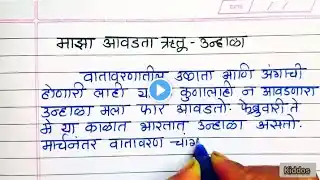 माझा आवडता ऋतू - उन्हाळा
वातावरणातील उष्णता आणि अंगाची
होणारी लाही या कुणालाही न आवडणारा
उन्हाळा मला फार आवडतो. फेब्रुवारी ते
मे या काळात भारतात उन्हाळा असतो.
मार्चनंतर वातावरण चांग
Kiddos